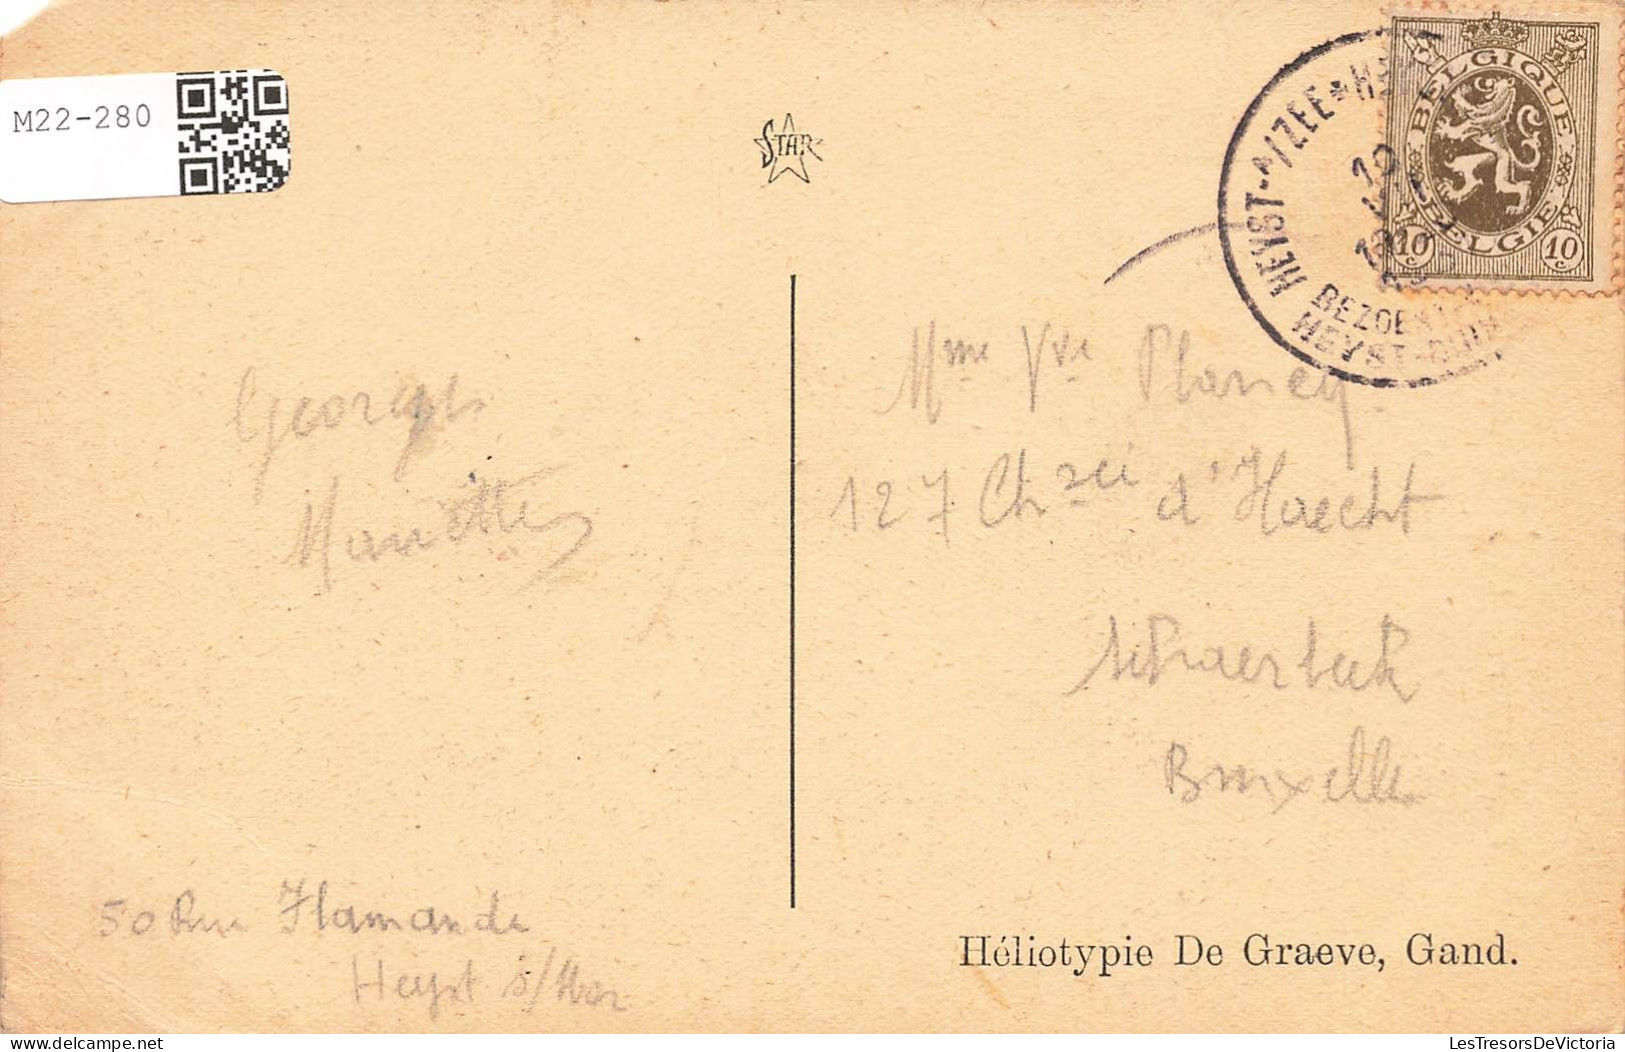 M22-280
STAR
HEYST-A/ZEE * H
BEZOEKT
HEYST-DUIN
10
BELGIQUE
BELGIE
10 c 10 c
Georges
Mariette
Mme Vve Plancq.
127 Chsée d'Haecht
Schaerbeek
Bruxelles
50 Rue Flamande
Heyst s/Mer
Héliotypie De Graeve, Gand.
LesTresorsDeVictoria
delcampe.net